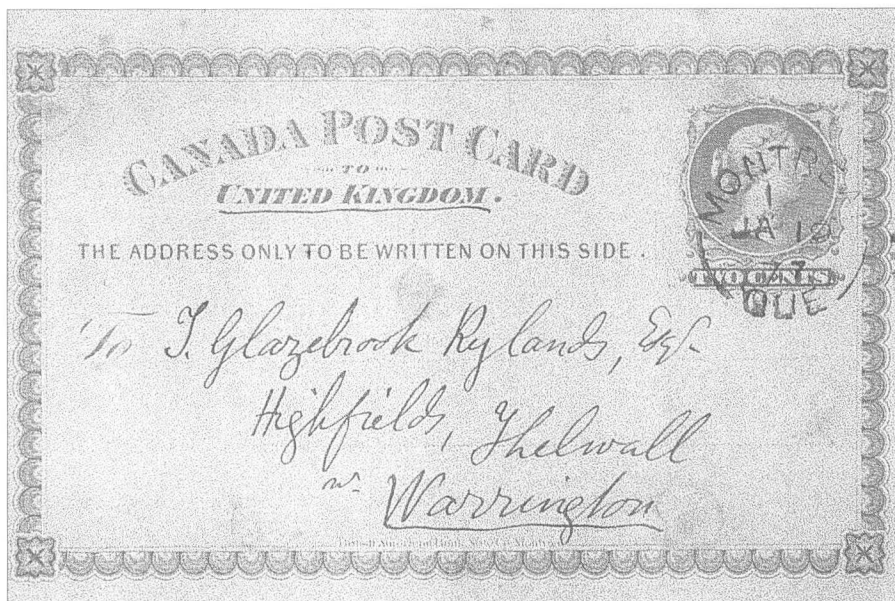 CANADA POST CARD
TO
UNITED KINGDOM.
THE ADDRESS ONLY TO BE WRITTEN ON THIS SIDE.
MONTRE
1
JA 19
77
QUE
TWO CENTS
To T. Glazebrook Rylands, Esqr.
Highfields, Thelwall
nr. Warrington
British American Bank Note Co. Montreal